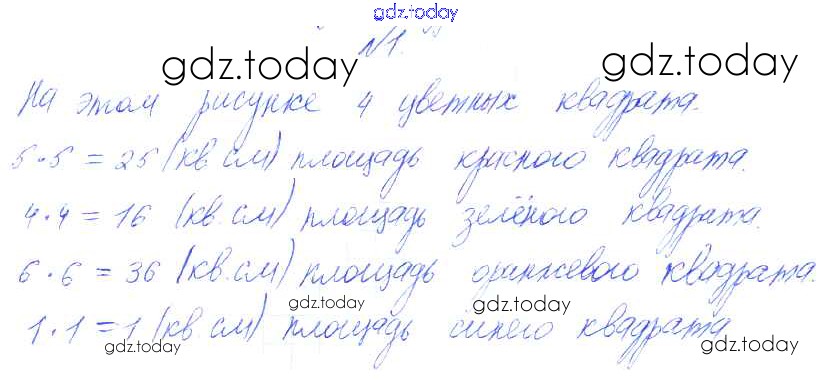 gdz.today
gdz.today №1. gdz.today
На этом рисунке 4 цветных квадрата.
5·5 = 25 (кв. см) площадь красного квадрата.
4·4 = 16 (кв. см) площадь зелёного квадрата.
6·6 = 36 (кв. см) площадь оранжевого квадрата.
gdz.today gdz.today
1·1 = 1 (кв. см) площадь синего квадрата.
gdz.today gdz.today